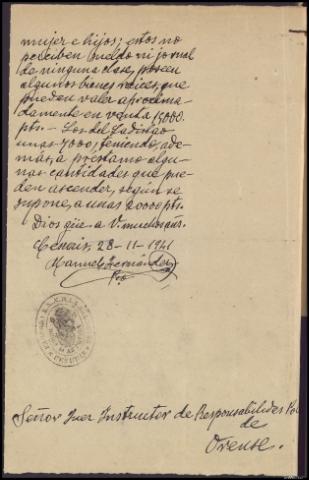 mujer e hijos; estos no
perciben sueldo ni jornal
de ninguna clase, poseen
algunos bienes raices, que
pueden valer aproxima-
damente en venta 15000
pts.- Los del
unas 7000, teniendo, ade-
más, a préstamo algu-
nas cantidades que pue-
den ascender, según se
supone, a unas 20000 pts.
Dios güe. a V. muchos añs.
28-11-1941
Manuel Hernández
Pbo
Señor Juez Instructor de Responsabilides Po
de
Orense.